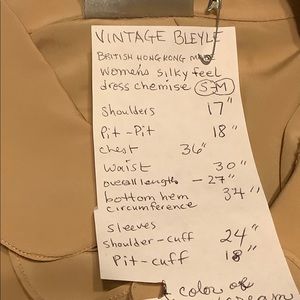 VINTAGE BLEYLE
BRITISH HONG KONG MADE
Women's silky feel
dress chemise S-M
shoulders 17"
Pit-Pit 18"
chest 36"
waist 30"
overall length - 27"
bottom hem 34"
circumference
sleeves
shoulder-cuff 24"
Pit-cuff 18"
color of